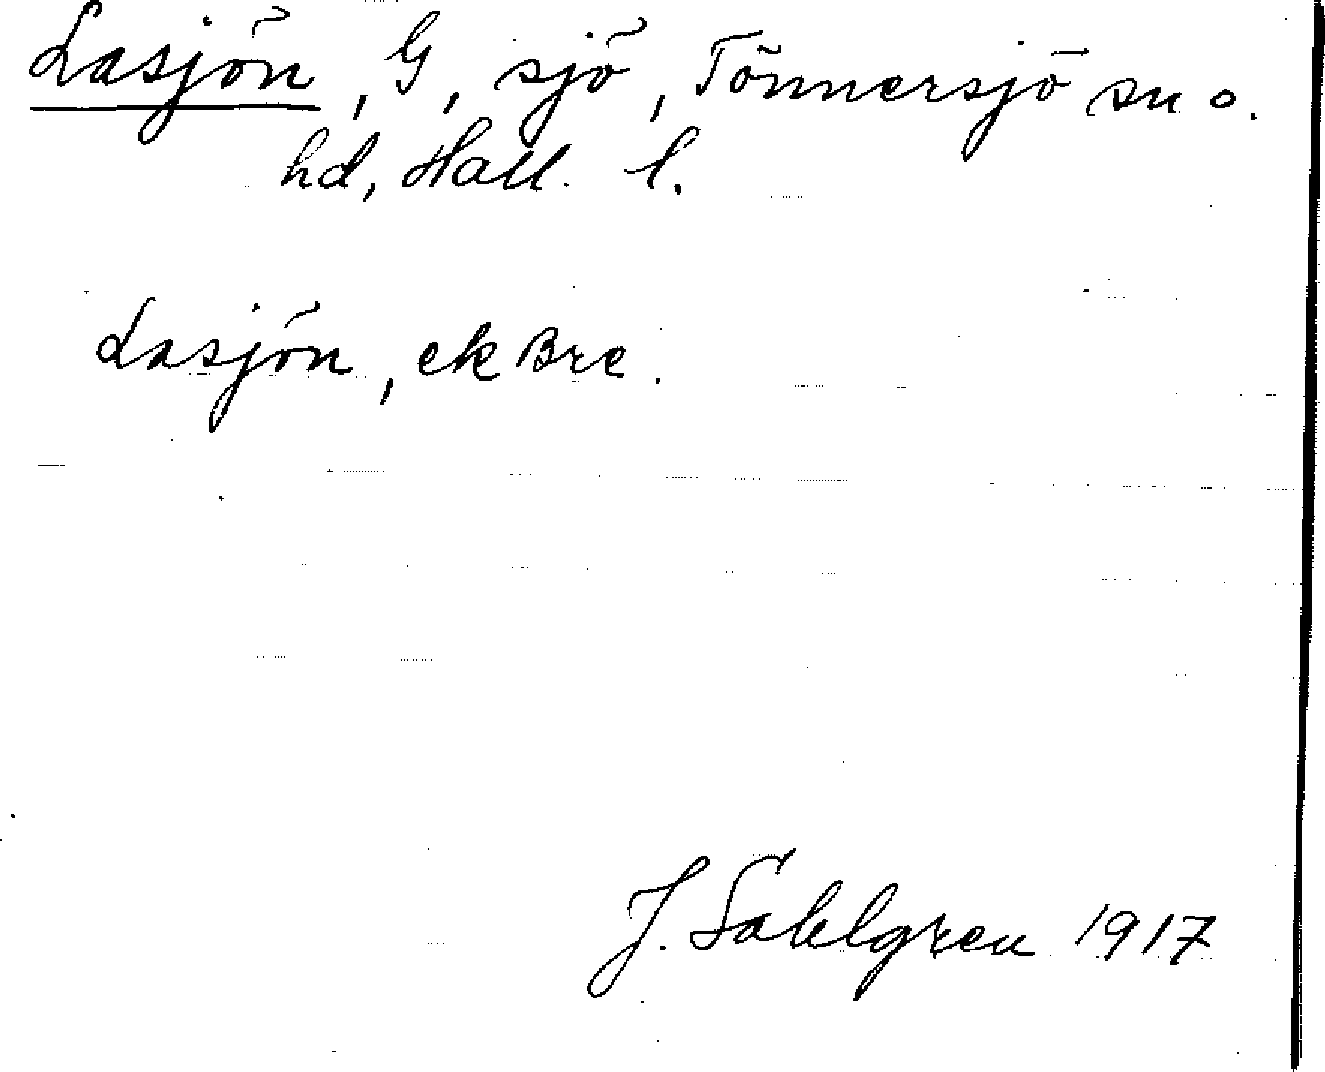 Lasjön, G, sjö, Tönnersjö sn o.
hd, Hall. l.
Lasjön, ek Bre.
J. Sahlgren 1917